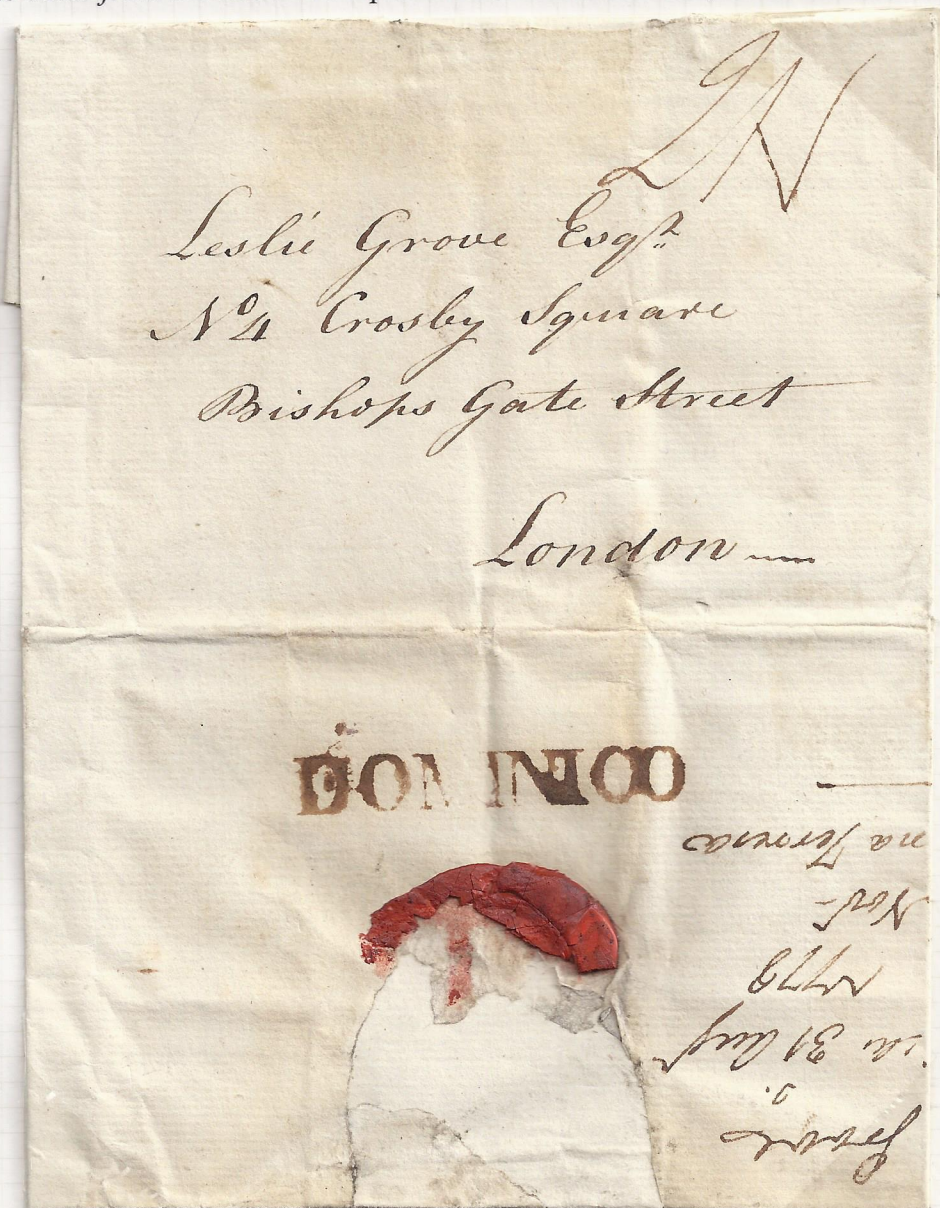 2N
Leslie Grove Esqr.
No 4 Crosby Square
Bishops Gate Street
London
DOMINICO
Grove
31 Augt
1778
Novr